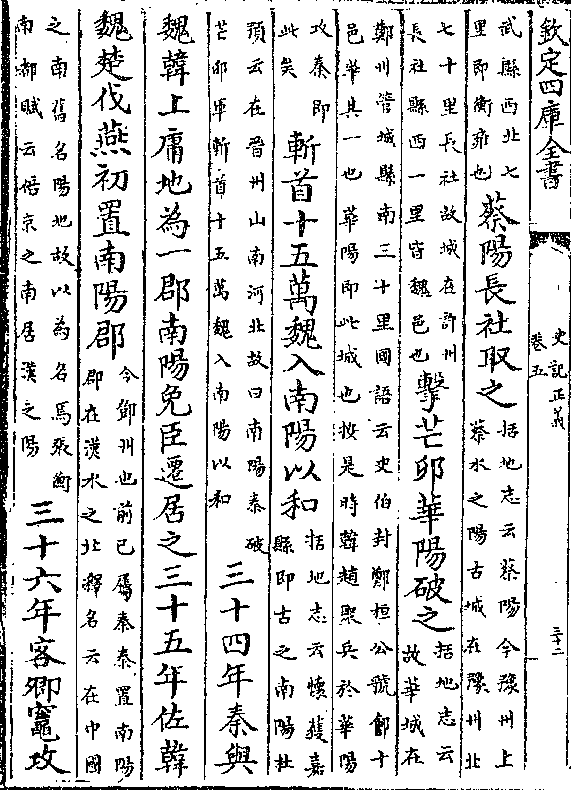 欽定四庫全書
史記正義
卷五
三十二
武縣西北七
里即衡雍也
蔡陽長社取之
括地志云蔡陽今豫州上
蔡水之陽古城在豫州北
七十里長社故城在許州
長社縣西一里皆魏邑也
擊芒卯華陽破之
括地志云
故華城在
鄭州管城縣南三十里國語云史伯封鄭桓公虢鄶十
邑華其一也華陽即此城也按是時韓趙聚兵於華陽
攻秦即
此矣
斬首十五萬魏入南陽以和
括地志云懷獲嘉
縣即古之南陽杜
預云在晉州山南河北故曰南陽秦破
芒卯軍斬首十五萬魏入南陽以和
三十四年秦與
魏韓上庸地為一郡南陽免臣遷居之三十五年佐韓
魏楚伐燕初置南陽郡
今鄧州也前已屬秦秦置南陽
郡在漢水之北釋名云在中國
之南舊名陽地故以為名焉張衡
南都賦云陪京之南居漢之陽
三十六年客卿竈攻